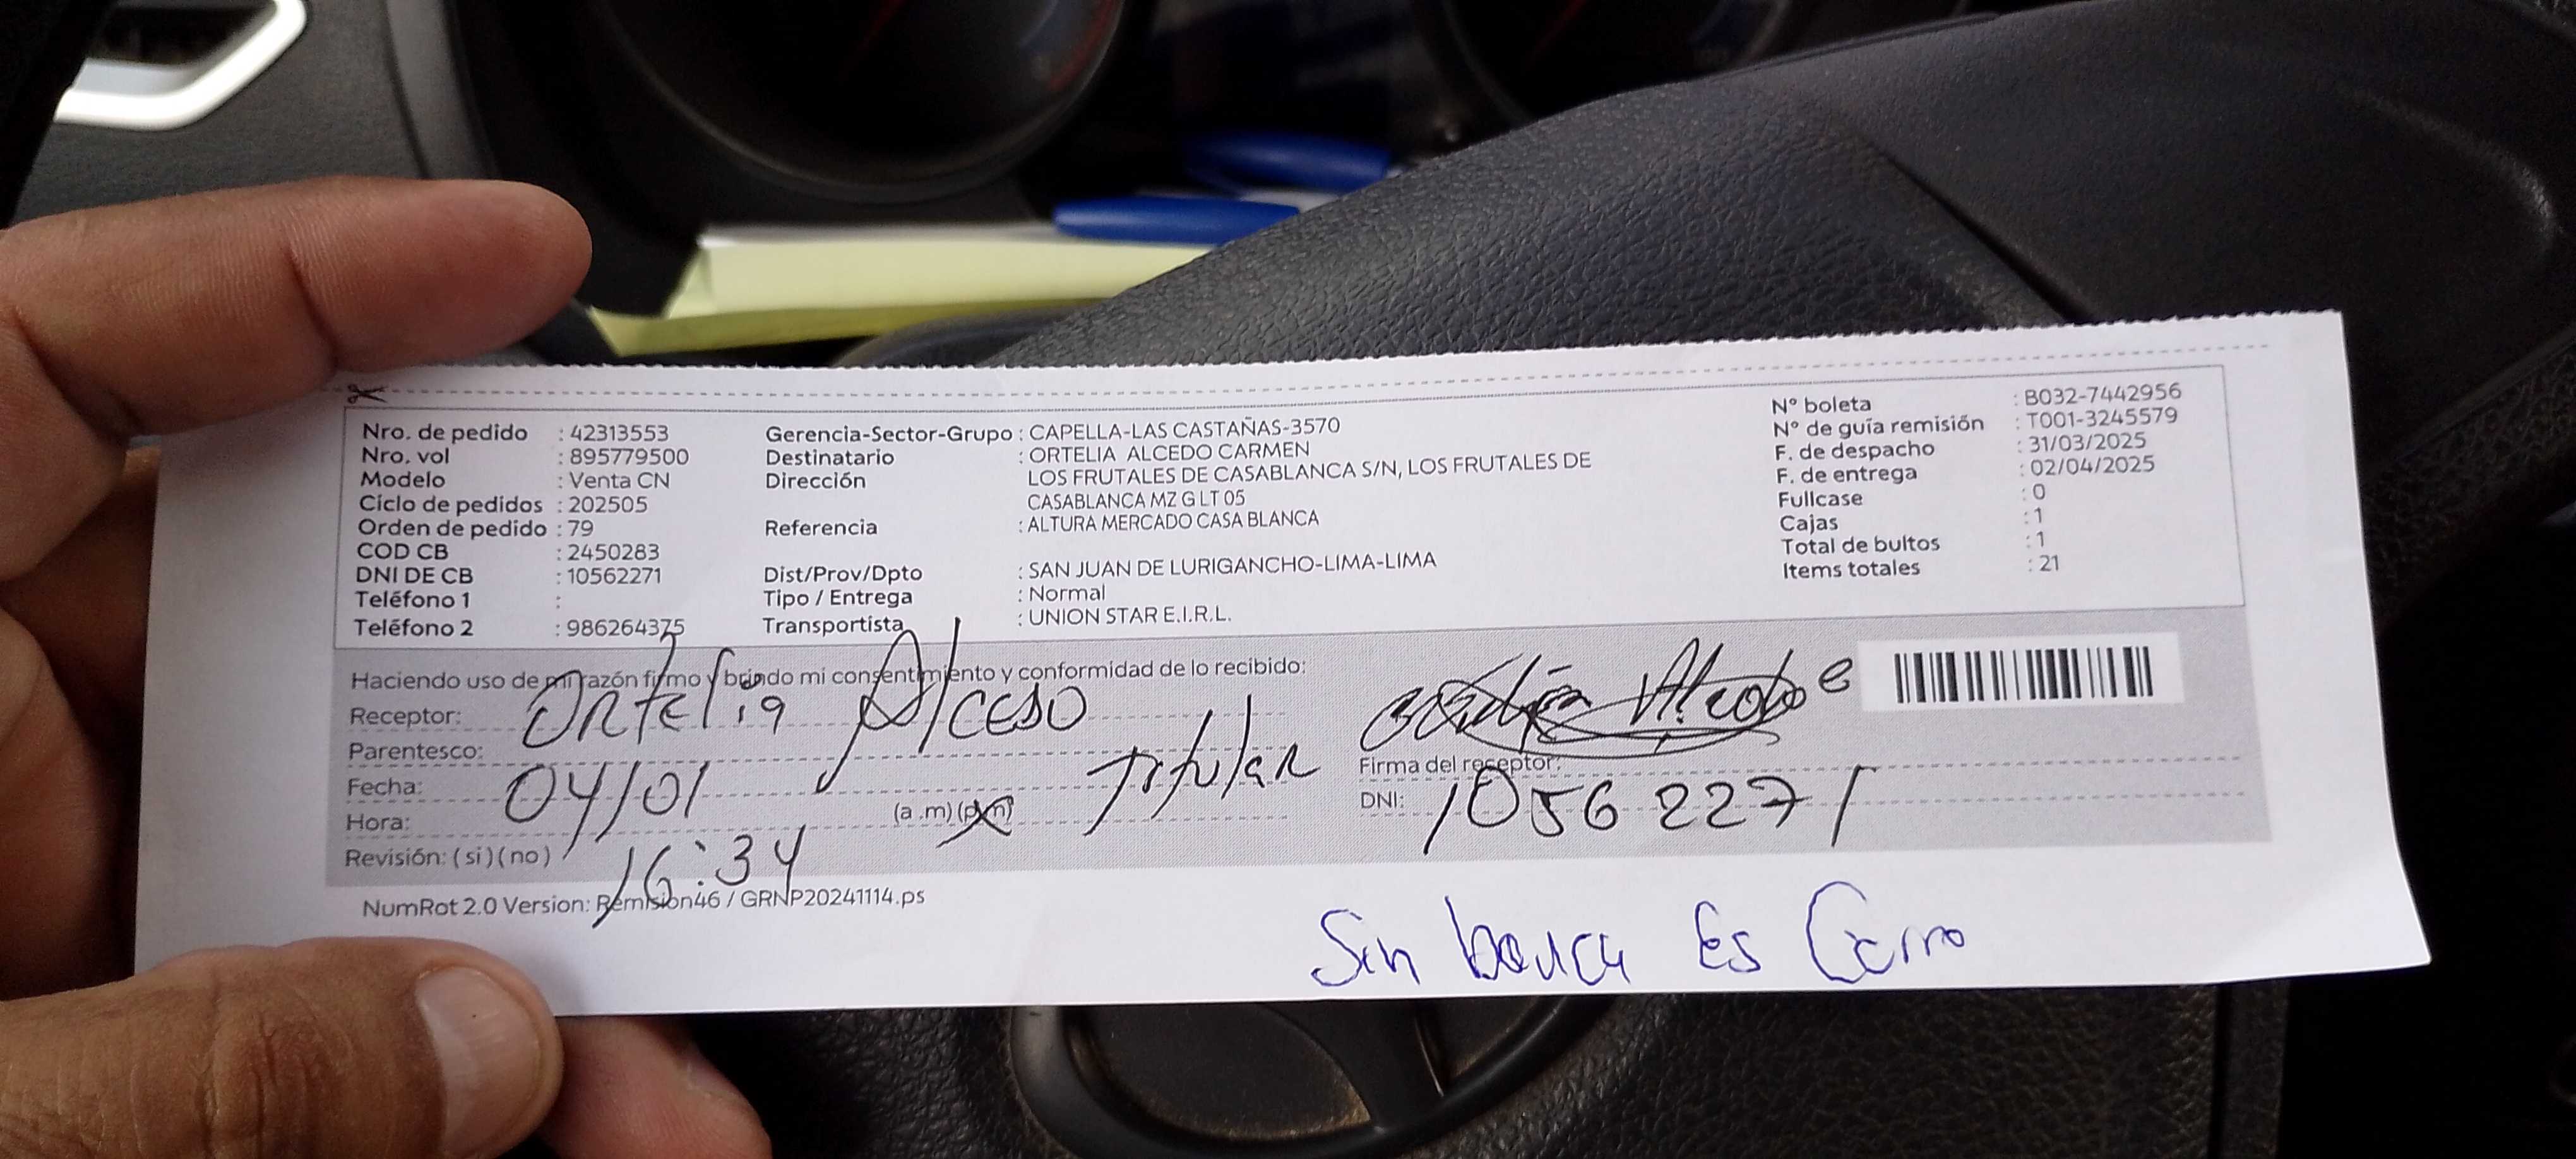 Nro. de pedido : 42313553
Nro. vol : 895779500
Modelo : Venta CN
Ciclo de pedidos : 202505
Orden de pedido : 79
COD CB : 2450283
DNI DE CB : 10562271
Teléfono 1 :
Teléfono 2 : 986264375
Gerencia-Sector-Grupo : CAPELLA-LAS CASTAÑAS-3570
Destinatario : ORTELIA ALCEDO CARMEN
Dirección LOS FRUTALES DE CASABLANCA S/N, LOS FRUTALES DE
CASABLANCA MZ G LT 05
Referencia : ALTURA MERCADO CASA BLANCA
Dist/Prov/Dpto : SAN JUAN DE LURIGANCHO-LIMA-LIMA
Tipo / Entrega : Normal
Transportista : UNION STAR E.I.R.L.
N° boleta : B032-7442956
N° de guía remisión : T001-3245579
F. de despacho : 31/03/2025
F. de entrega : 02/04/2025
Fullcase : 0
Cajas : 1
Total de bultos : 1
Items totales : 21
Haciendo uso de mi razón firmo y brindo mi consentimiento y conformidad de lo recibido:
Receptor: Ortelia Alceso
Parentesco: Titular
Fecha: 04/01
Hora: 16:34 (a .m) (p.m)
Revisión: (si) (no)
Firma del receptor:
DNI: 10562271
NumRot 2.0 Version: Remision46 / GRNP20241114.ps
Sin Es Cerro